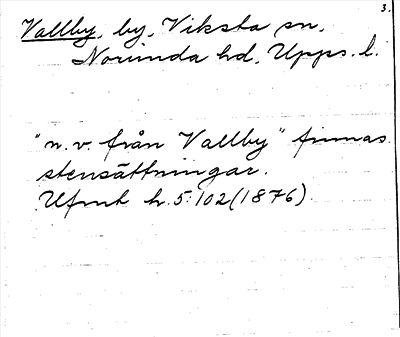 3.
Vallby, by, Viksta sn,
Norunda hd, Upps. l.
"n.v. från Vallby" finnas
stensättningar.
Ufmt h. 5:102 (1876).